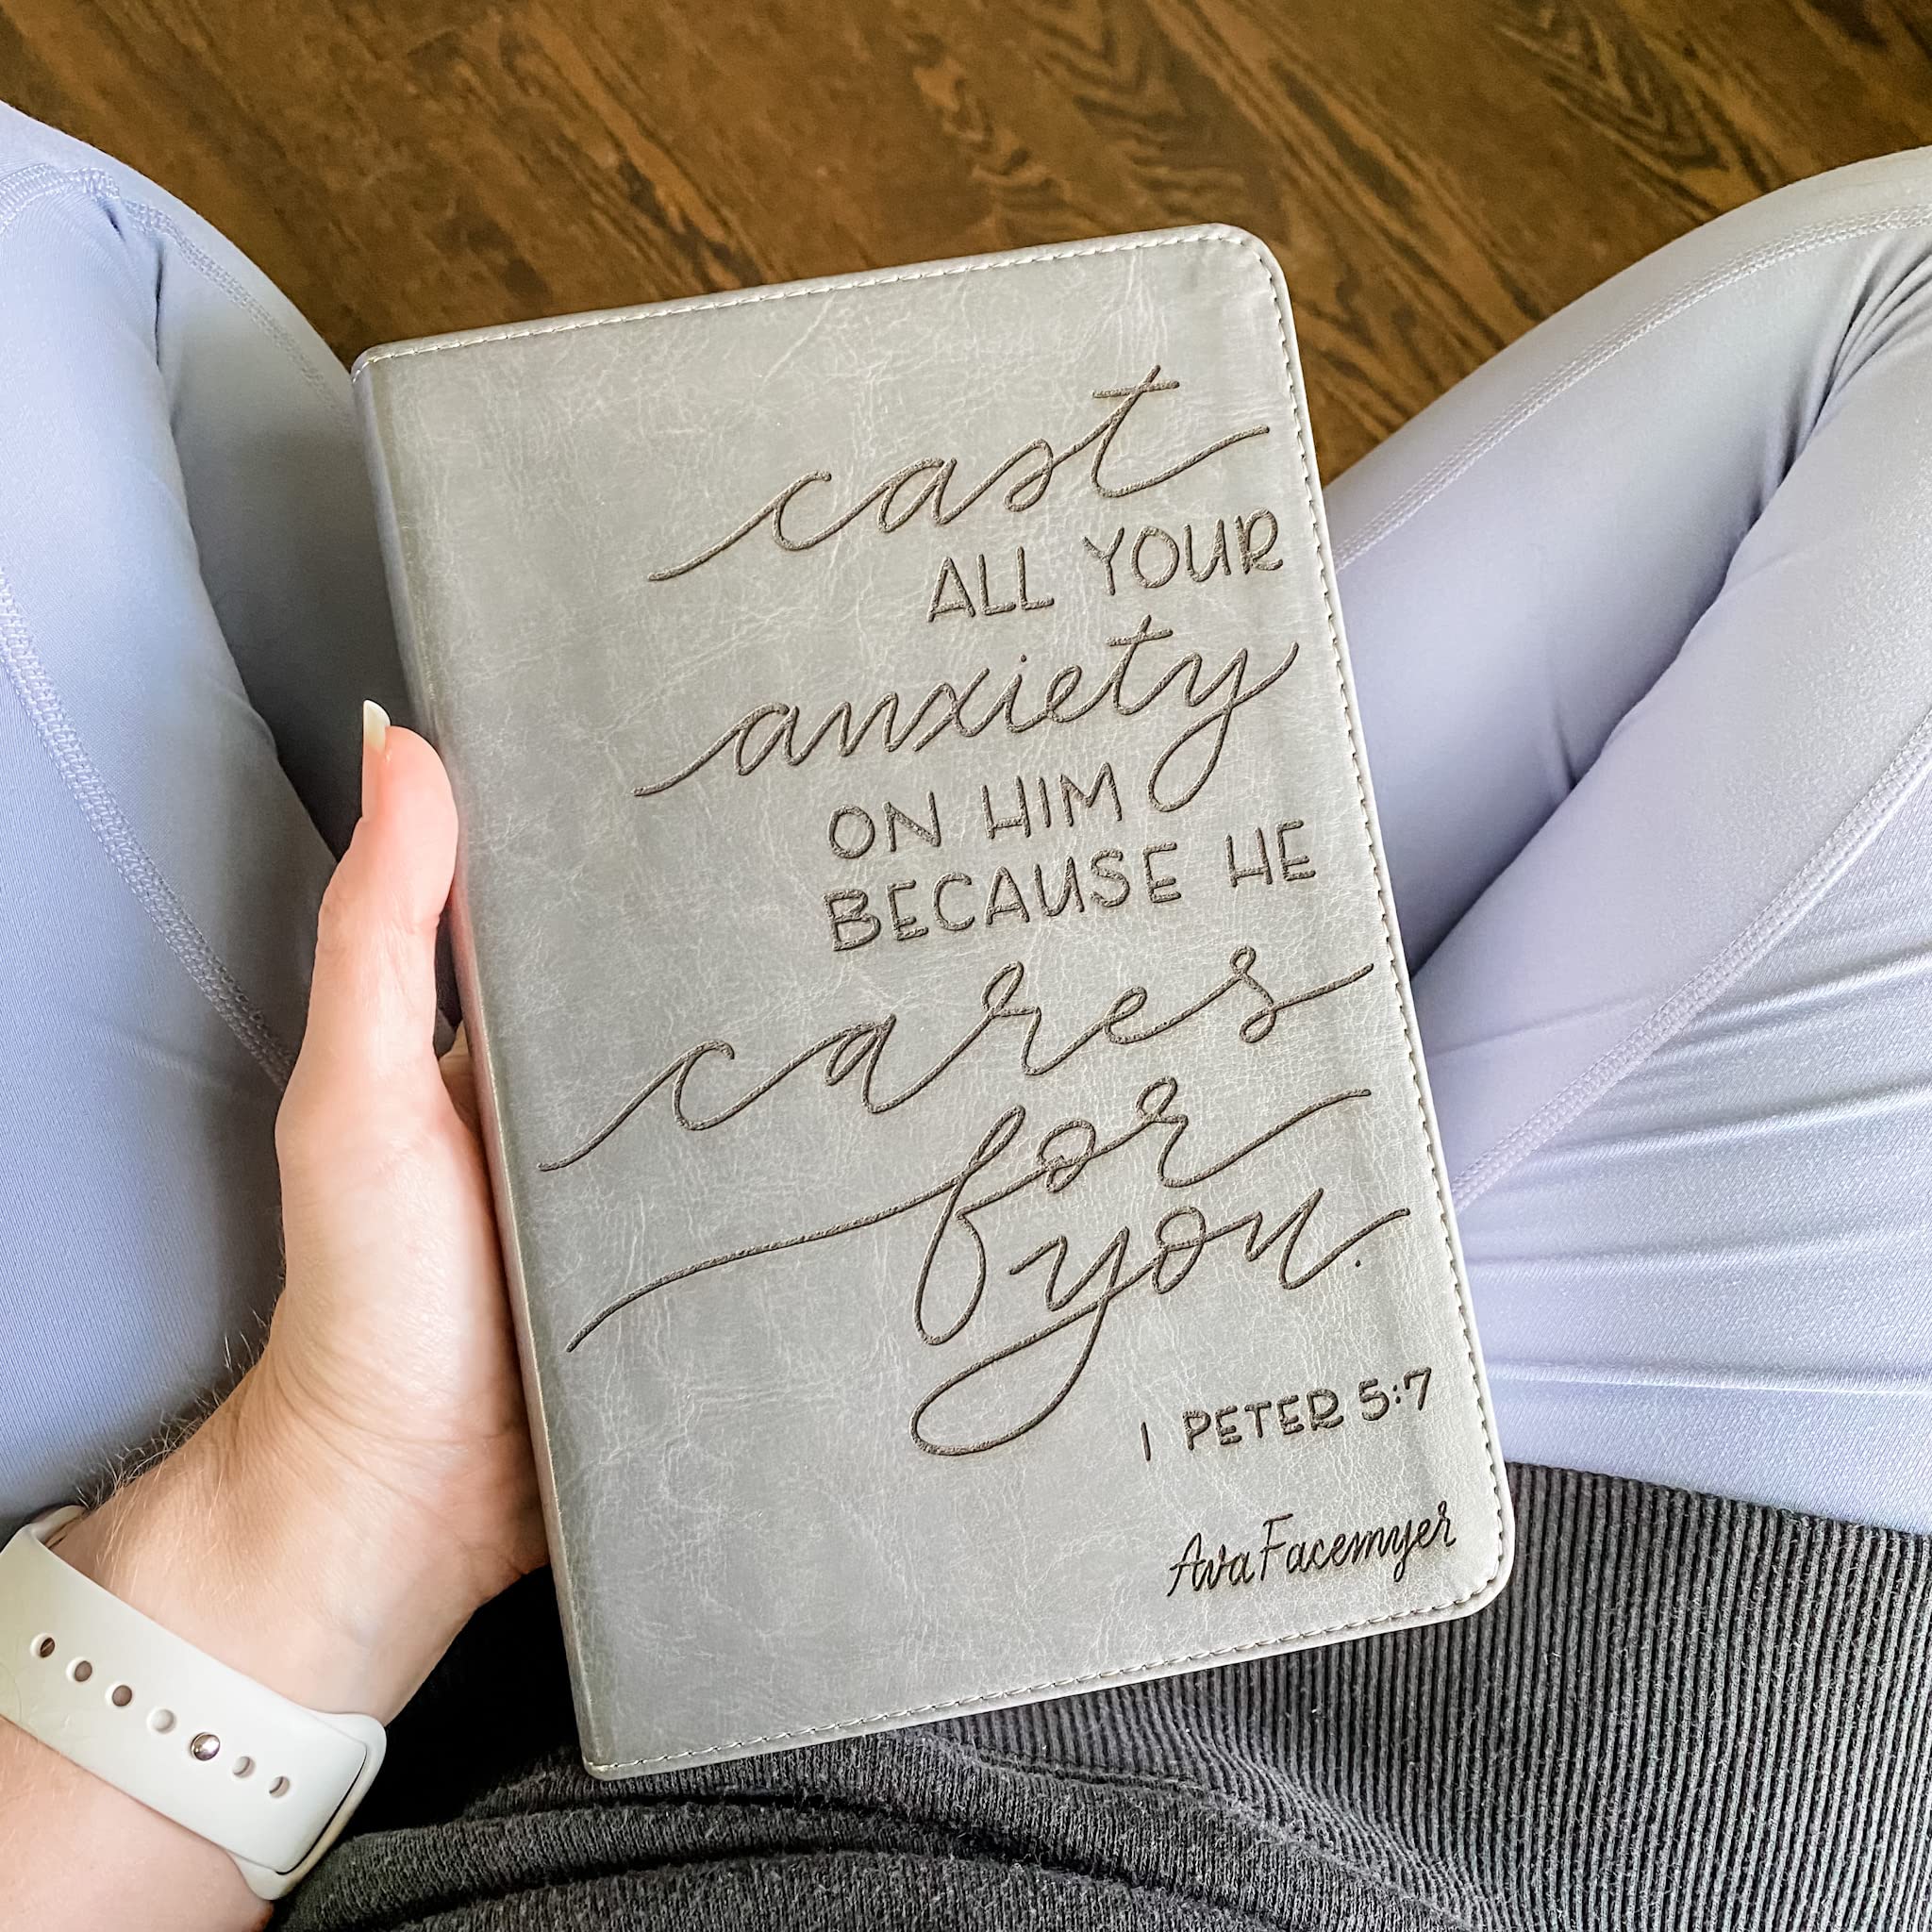 cast
ALL YOUR
anxiety
ON HIM
BECAUSE HE
cares
for
you.
1 PETER 5:7
Ava Facemyer